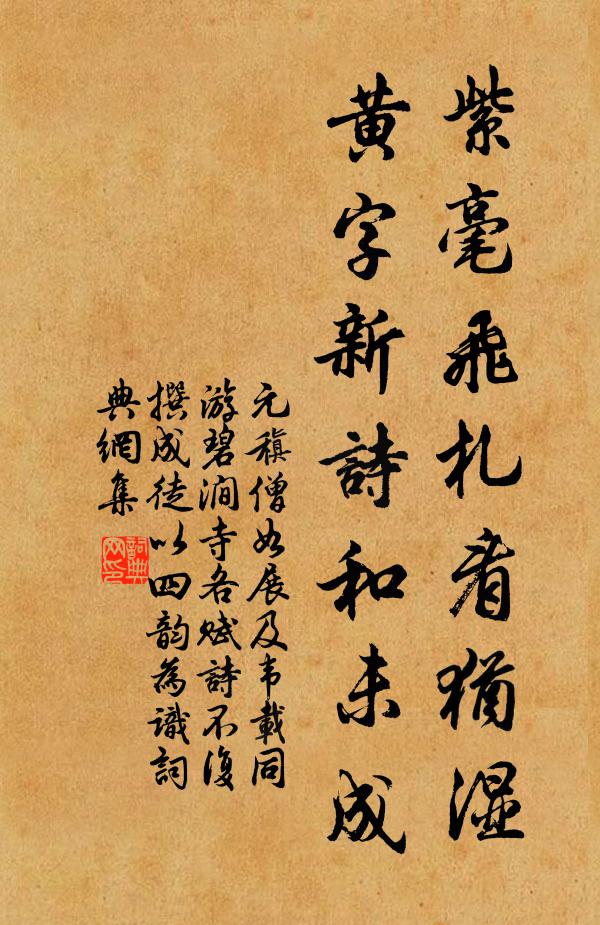 紫毫飛札看猶濕
黄字新詩和未成
元稹僧如展及韦載同
游碧澗寺各赋詩不復
撰成徒以四韵為識詞
典網集
詞典
网印